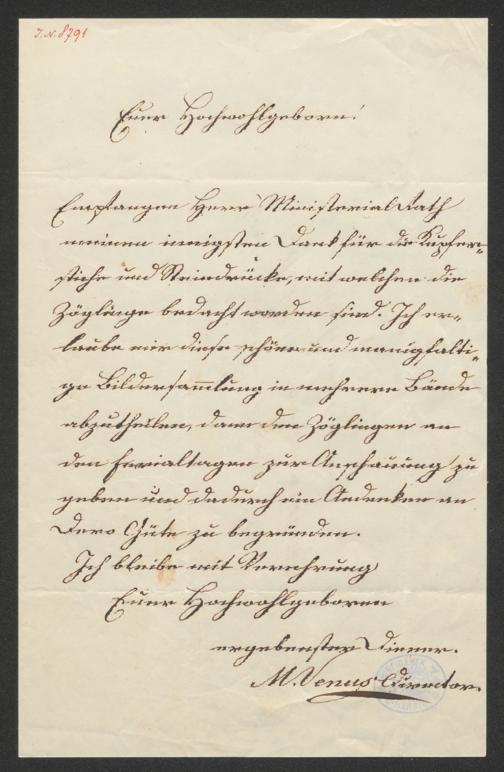 I.N. 8791
Euer Hochwohlgeboren!
Empfangen Herr Ministerial Rath
meinen innigsten Dank für die Kupfer-
stiche und Steindrücke, mit welchen die
Zöglinge bedacht worden sind. Ich er-
laube mir diese schöne und manigfalti-
ge Bildersammlung in mehrere Bände
abzutheilen, dann den Zöglingen an
den Ferialtagen zur Anschauung zu
geben und dadurch ein Andenken an
Dero Güte zu begründen.
Ich bleibe mit Verehrung
Euer Hochwohlgeboren
ergebenster Diener.
M. Venus Director.